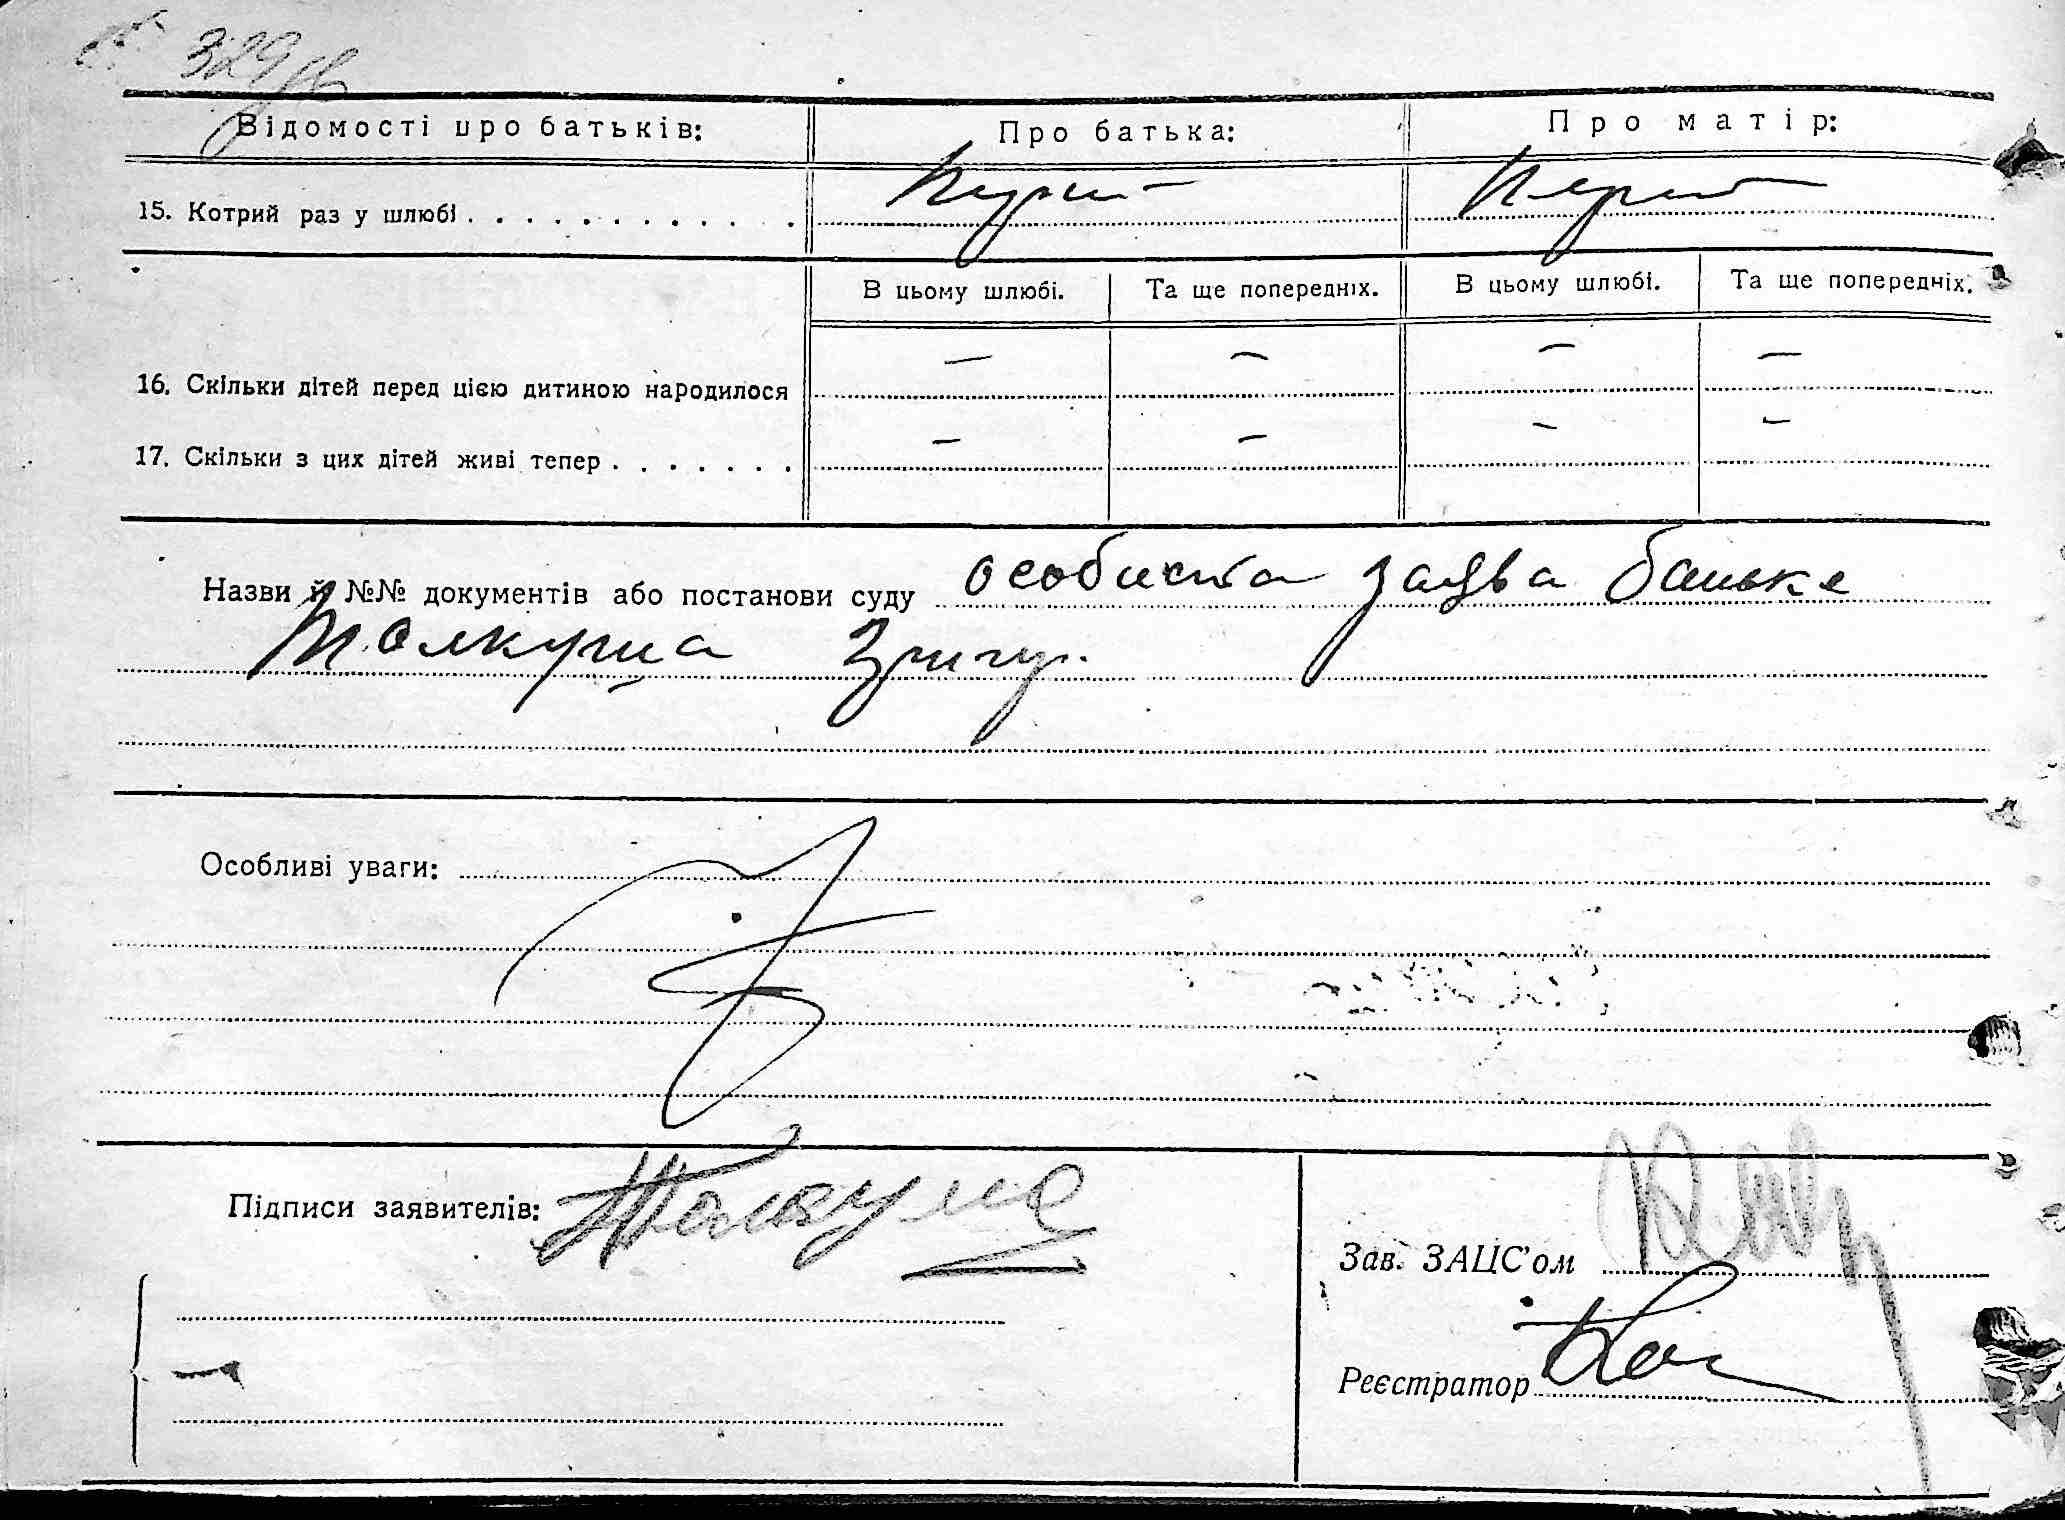 329
Відомості про батьків: Про батька: Про матір:
15. Котрий раз у шлюбі . . . . . . . . . . . . Перший Перший
В цьому шлюбі. Та ще попередніх. В цьому шлюбі. Та ще попередніх.
16. Скільки дітей перед цією дитиною народилося — — — —
17. Скільки з цих дітей живі тепер . . . . . . . — — — —
Назви й №№ документів або постанови суду особиста заява батька
Особливі уваги:
Підписи заявителів:
Зав. ЗАЦС'ом
Реєстратор